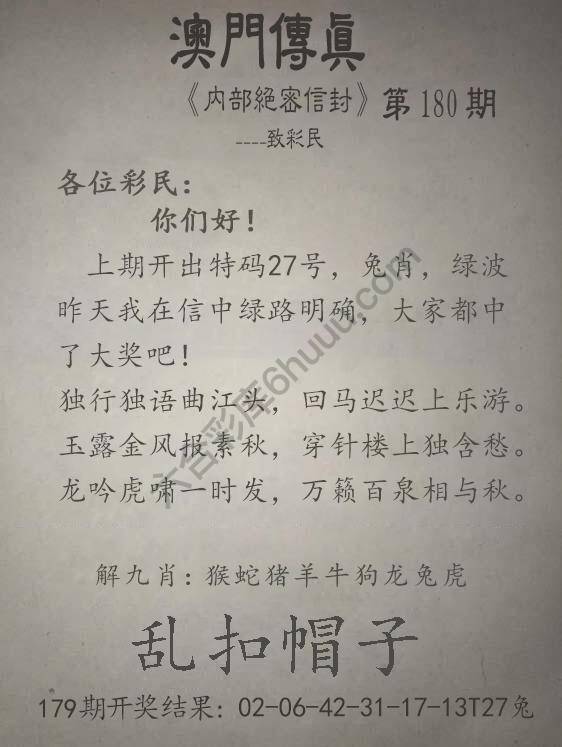 澳門傳眞
《内部絕密信封》第180期
----致彩民
各位彩民：
你们好！
上期开出特码27号，兔肖，绿波
昨天我在信中绿路明确，大家都中
了大奖吧！
独行独语曲江头，回马迟迟上乐游。
玉露金风报素秋，穿针楼上独含愁。
龙吟虎啸一时发，万籁百泉相与秋。
解九肖：猴蛇猪羊牛狗龙兔虎
乱扣帽子
179期开奖结果：02-06-42-31-17-13T27兔
六合彩库6huuu.com